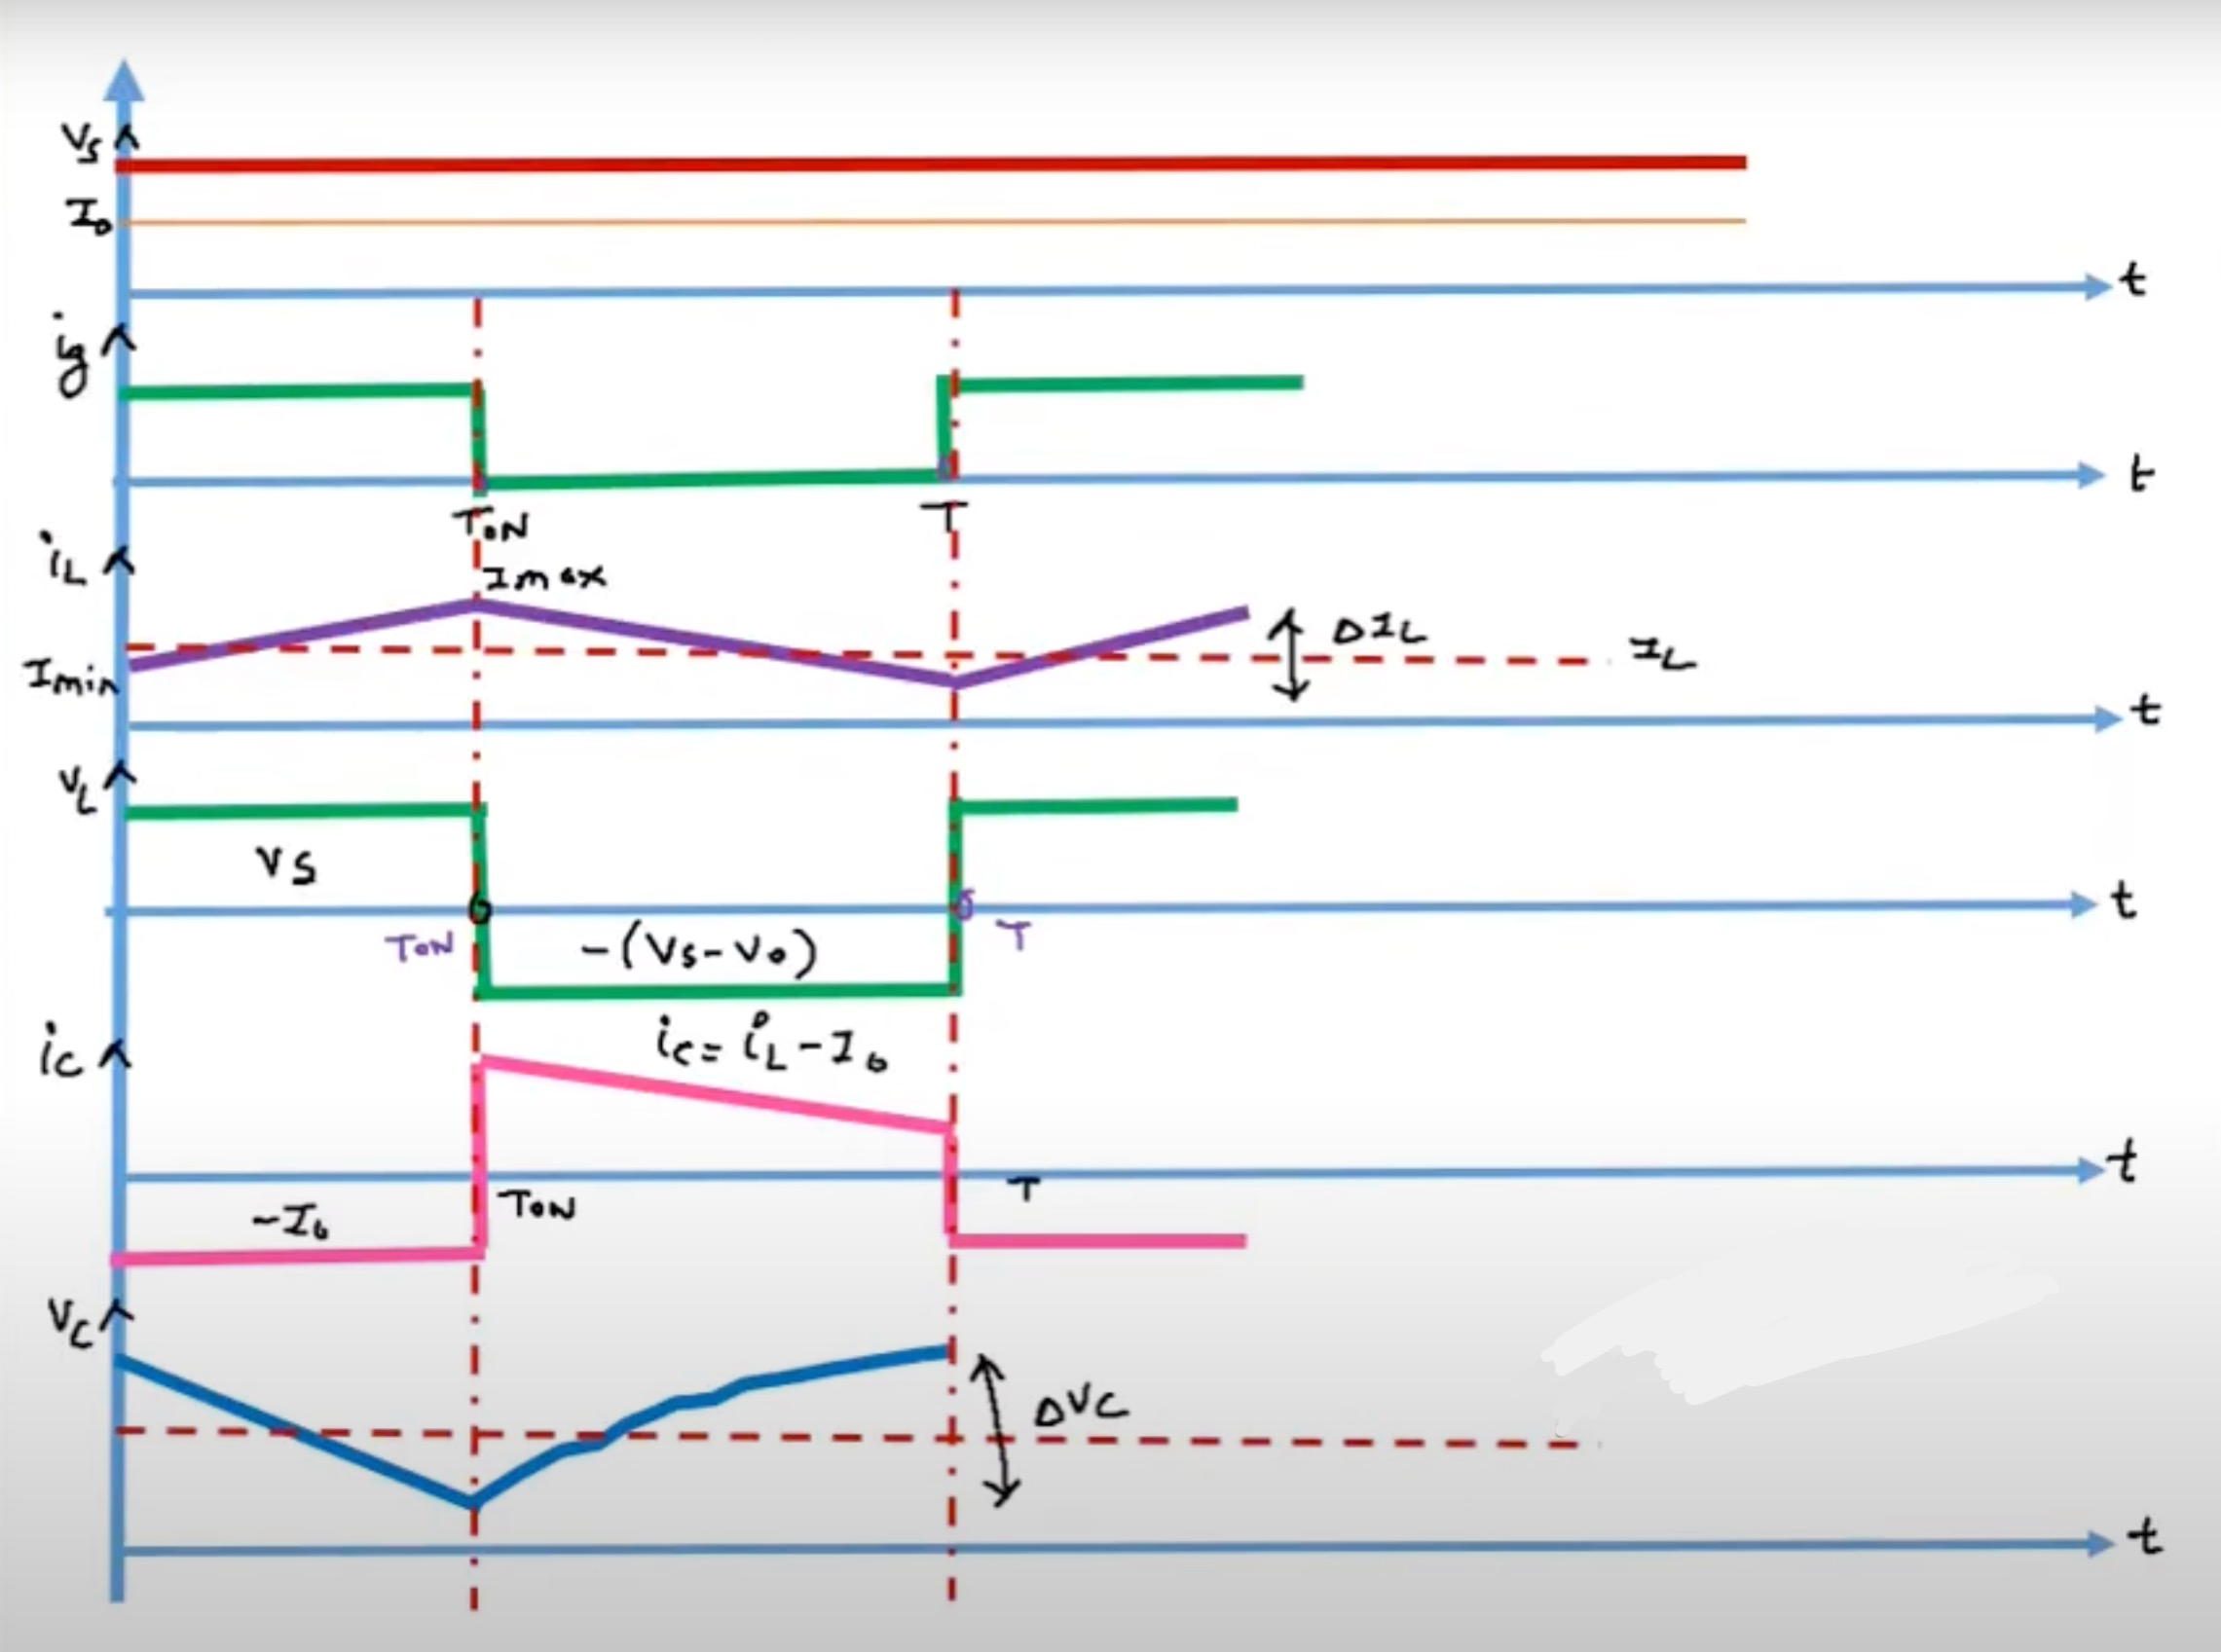 Vs
Io
t
ig
t
TON
T
iL
Imax
ΔIL
IL
Imin
t
VL
VS
t
TON
-(Vs-Vo)
T
ic
ic= iL-Io
t
TON
T
-Io
Vc
ΔVC
t